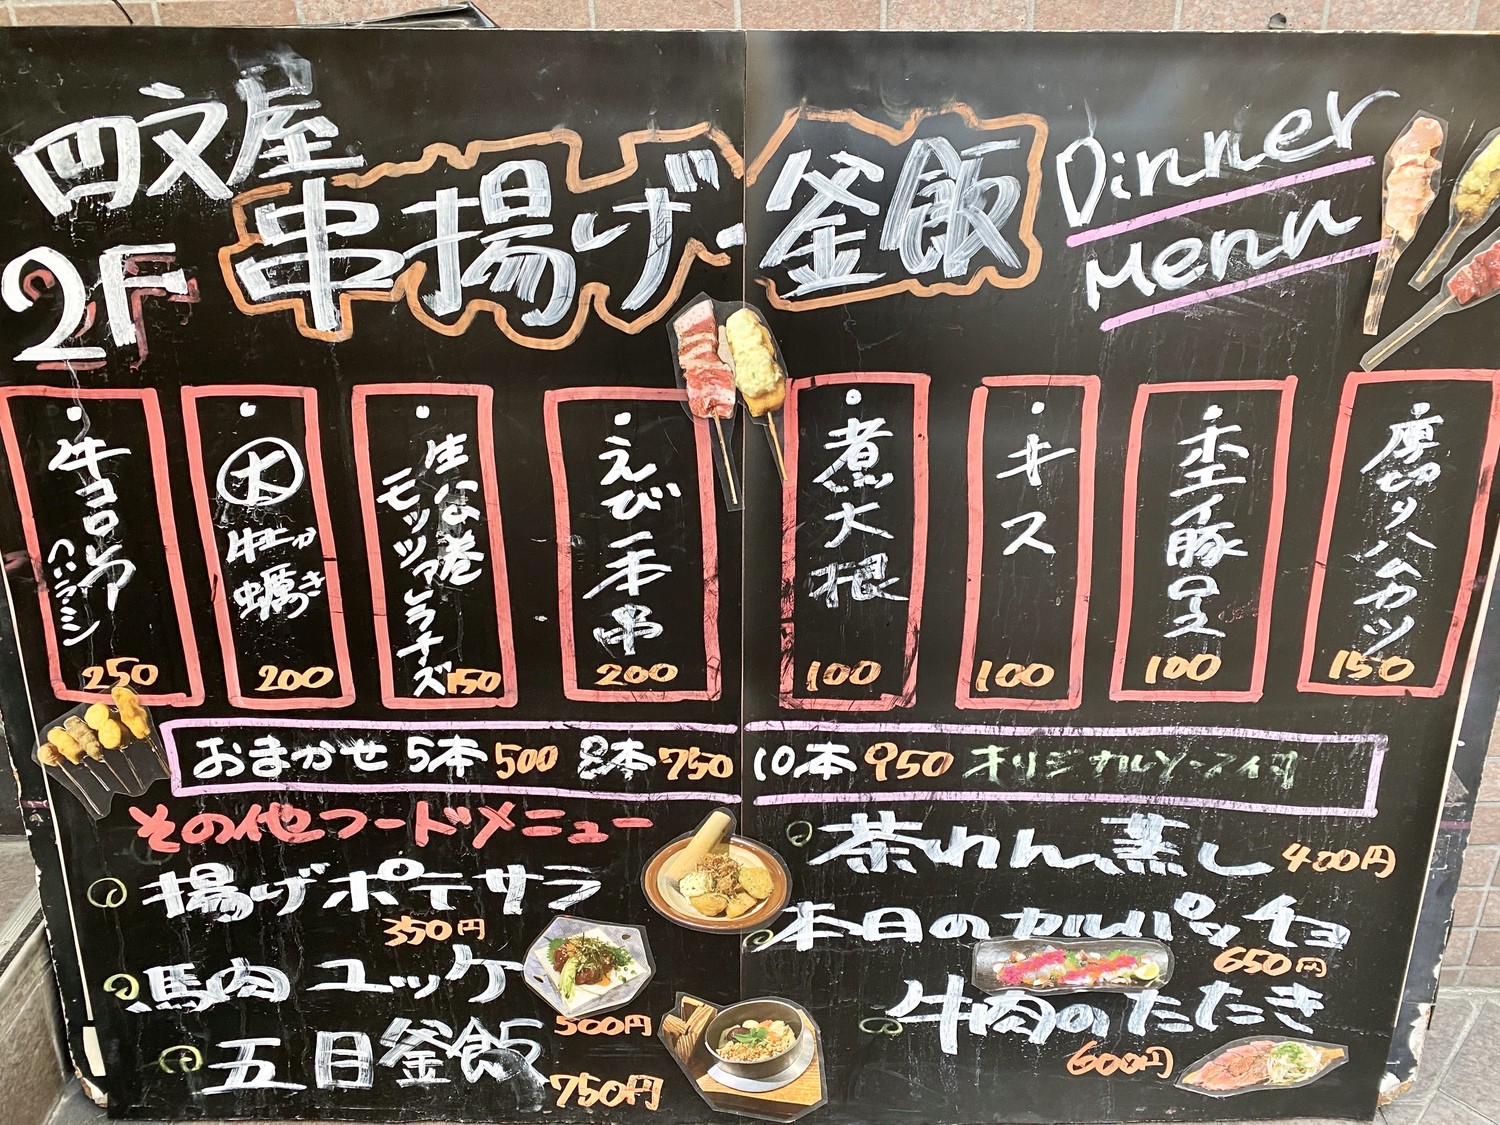 四文屋
2F
串揚げ・釜飯
Dinner
Menu
・牛コロ串
ヘレ
250
・大 牡蠣
かき
200
・生ハム巻
モッツァレラチーズ
150
・えび一本串
200
・煮大根
100
・キス
100
・ホエイ豚ロース
100
・厚切りハムカツ
150
おまかせ 5本 500 8本 750 10本 950 オリジナルソース付
その他フードメニュー
揚げポテサラ
350円
馬肉ユッケ
500円
五目釜飯
750円
茶わん蒸し 400円
本日のカルパッチョ
650円
牛肉のたたき
600円